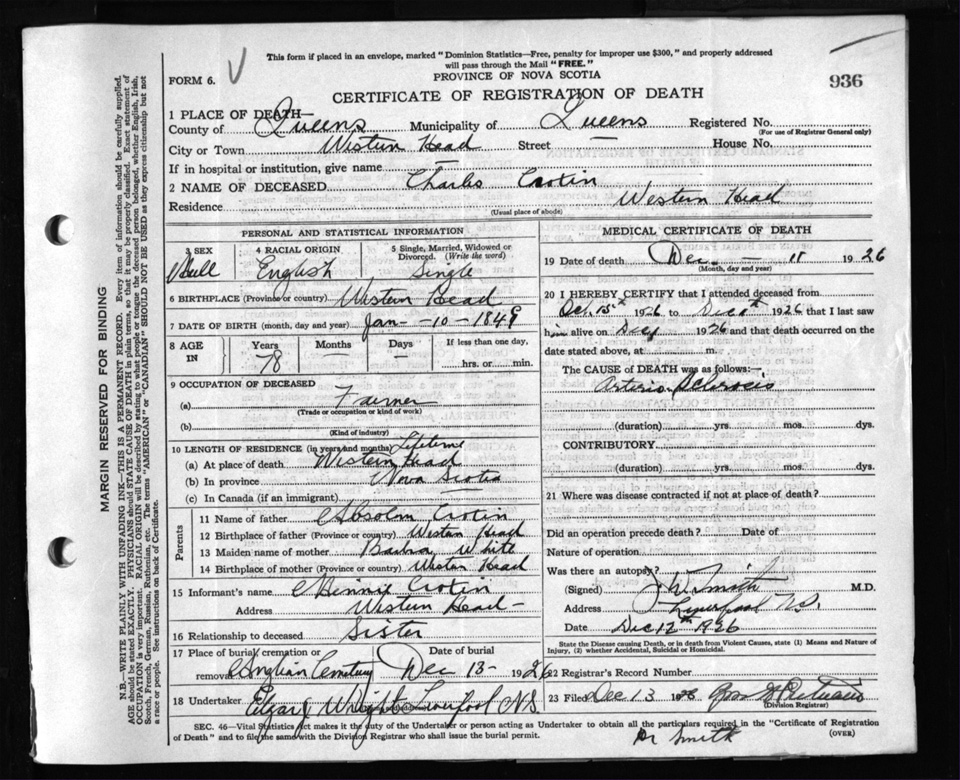 This form if placed in an envelope, marked "Dominion Statistics—Free, penalty for improper use $300," and properly addressed
will pass through the Mail "FREE."
FORM 6.
PROVINCE OF NOVA SCOTIA
936
CERTIFICATE OF REGISTRATION OF DEATH
1 PLACE OF DEATH—
County of Queens Municipality of Queens Registered No.
(For use of Registrar General only)
City or Town Western Head Street — House No.
If in hospital or institution, give name —
2 NAME OF DECEASED Charles Crotin
Residence Western Head
(Usual place of abode)
PERSONAL AND STATISTICAL INFORMATION
3 SEX 4 RACIAL ORIGIN 5 Single, Married, Widowed or Divorced. (Write the word)
English Single
6 BIRTHPLACE (Province or country) Western Head
7 DATE OF BIRTH (month, day and year) Jan — 10 — 1849
8 AGE IN Years Months Days If less than one day,
78 — — hrs. or min.
9 OCCUPATION OF DECEASED
(a) Farmer
(Trade or occupation or kind of work)
(b)
(Kind of industry)
10 LENGTH OF RESIDENCE (in years and months) Lifetime
(a) At place of death Western Head
(b) In province Nova Scotia
(c) In Canada (if an immigrant)
Parents
11 Name of father Absolm Crotin
12 Birthplace of father (Province or country) Western Head
13 Maiden name of mother White
14 Birthplace of mother (Province or country) Western Head
15 Informant's name Crotin
Address Western Head —
16 Relationship to deceased Sister
17 Place of burial, cremation or removal Date of burial
Anglian Cemetery Dec 13 - 1926
18 Undertaker Edgar J Wright Liverpool N.S.
MEDICAL CERTIFICATE OF DEATH
19 Date of death Dec. — 11 1926
(Month, day and year)
20 I HEREBY CERTIFY that I attended deceased from
Oct. 15th 1926 to Dec 11th 1926 that I last saw
him alive on Dec 1926 and that death occurred on
date stated above, at m.
The CAUSE of DEATH was as follows:—
Arterio Sclerosis
(duration) yrs. mos. dys.
CONTRIBUTORY
(duration) yrs. mos. dys.
21 Where was disease contracted if not at place of death?
Did an operation precede death? Date of
Nature of operation
Was there an autopsy?
(Signed) J W Smith M.D.
Address Liverpool N.S.
Date Dec 12th 1926
State the Disease causing Death, or in death from Violent Causes, state (1) Means and Nature of Injury, (2) whether Accidental, Suicidal or Homicidal.
22 Registrar's Record Number
23 Filed Dec 13 1926
(Division Registrar)
SEC. 46—Vital Statistics Act makes it the duty of the Undertaker or person acting as Undertaker to obtain all the particulars required in the "Certificate of Registration
of Death" and to file the same with the Division Registrar who shall issue the burial permit.
(OVER)
Dr Smith
MARGIN RESERVED FOR BINDING
N.B.—WRITE PLAINLY WITH UNFADING INK—THIS IS A PERMANENT RECORD. Every item of information should be carefully supplied.
AGE should be stated EXACTLY. PHYSICIANS should STATE CAUSE OF DEATH in plain terms, so that it may be properly classified. Exact statement of
OCCUPATION is very important. RACIAL ORIGIN will be described by stating to what people or tongue the deceased person belonged, whether English, Irish,
Scotch, French, German, Russian, Ruthenian, etc. The terms "AMERICAN" or "CANADIAN" SHOULD NOT BE USED as they express citizenship but not
a race or people. See instructions on back of Certificate.